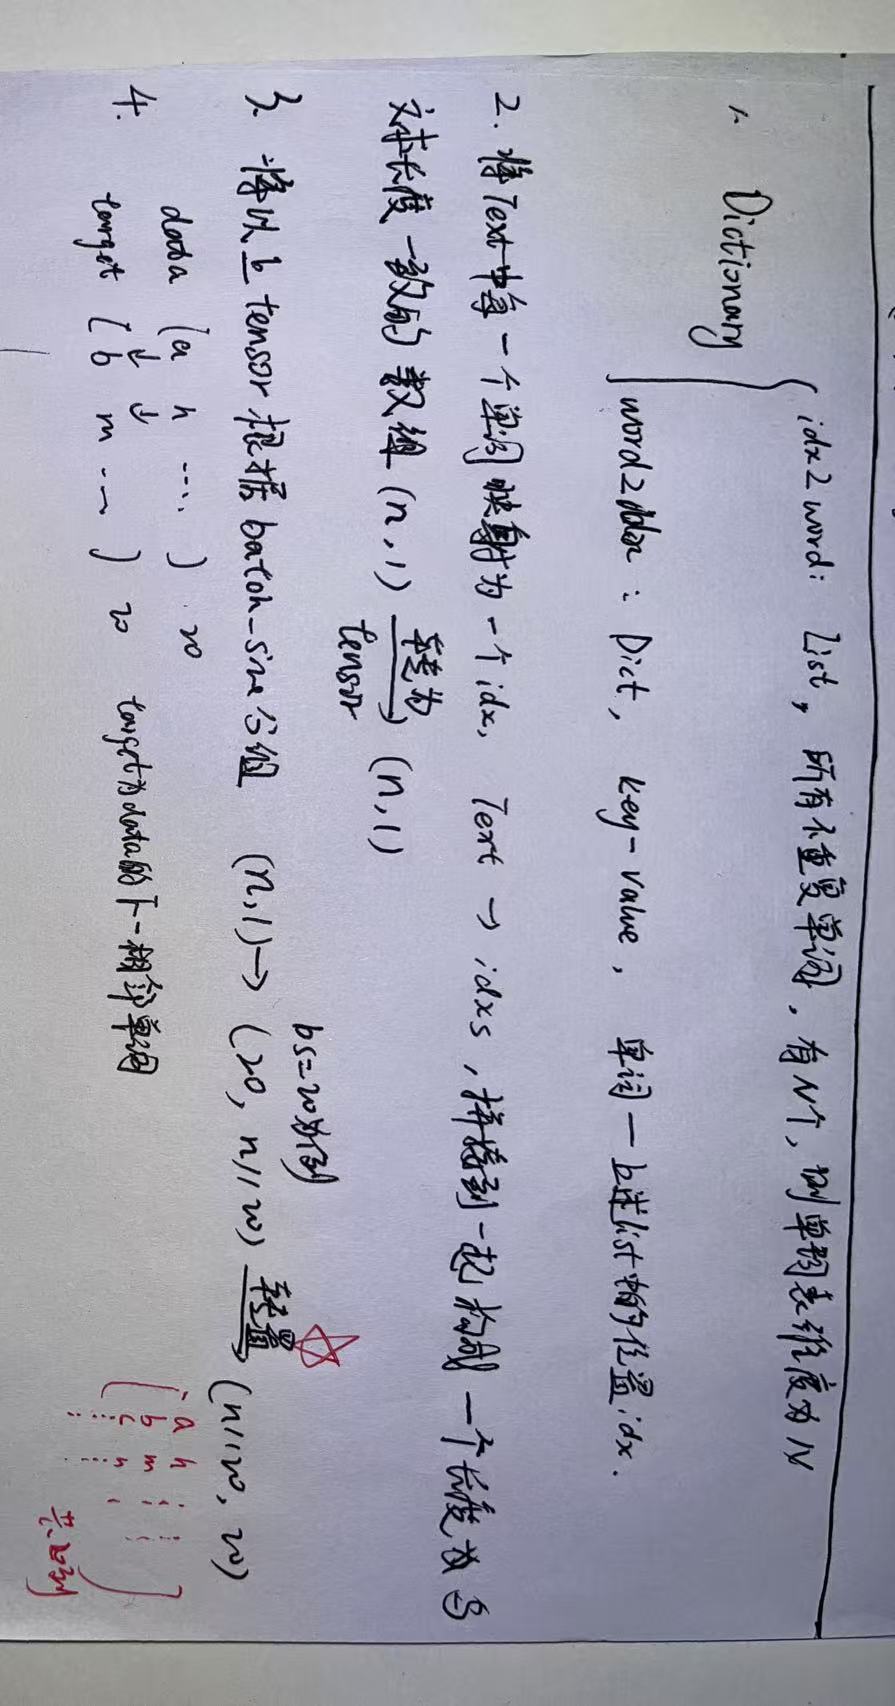 1. Dictionary
idx2word: List, 所有不重复单词, 有N个, 则单词表维度为N
word2idx: Dict, key-value, 单词一上述list中的位置idx.
2. 将Text中每一个单词映射为一个idx, Text → idxs, 拼接到一起构成一个长度与
文本长度一致的数组 (n,1) 转为 tensor (n,1)
bs=20为例
3. 将以上tensor根据batch-size分组 (n,1)→ (20, n//20) 转置 (n//20, 20)
data [a h ....] 20
4.
target [b m ....] 20 target为data的下一相邻单词
a h
b m
c n
共20列